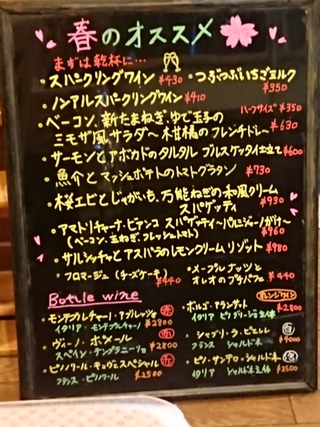 春のオススメ
まずは乾杯に…
・スパークリングワイン ¥430 ・つぶつぶいちごミルク ¥350
・ノンアルスパークリングワイン ¥410
・ベーコン、新たまねぎ、ゆで玉子の ハーフサイズ ¥350
ミモザ風サラダ〜柑橘のフレンチドレ〜 ¥630
・サーモンとアボカドのタルタル ブルスケッタ仕立て ¥600
・魚介とマッシュポテトのトマトグラタン ¥730
・桜エビとじゃがいも、万能ねぎの和風クリーム
スパゲッティ ¥930
・アマトリチャーナ・ビアンコ スパゲッティ〜パルミジャーノがけ〜
(ベーコン、玉ねぎ、フレッシュトマト) ¥960
・サルシッチャとアスパラのレモンクリームリゾット ¥980
・フロマージュ (チーズケーキ) ¥440
・メープルナッツと
オレオのブラパフェ ¥440
Bottle wine
・モンテプルチャーノ・アブルッツォ 赤
イタリア モンテプルチャーノ ¥2800
・ヴィーノ・ボスール 赤
スペイン・テンプラニーリョ ¥2800
・ピノノワール・キュヴェスペシャル 赤
フランス ピノノワール ¥2500
オレンジワイン
・ボルゴ・アランサット ¥2800
イタリア ピノグリージョ主体
・シャブリ・ラ・ピエレレ 白
フランス シャルドネ ¥4000
・ピノ・サンテロ・シャルドネ 泡
イタリア シャルドネ主体 ¥2500